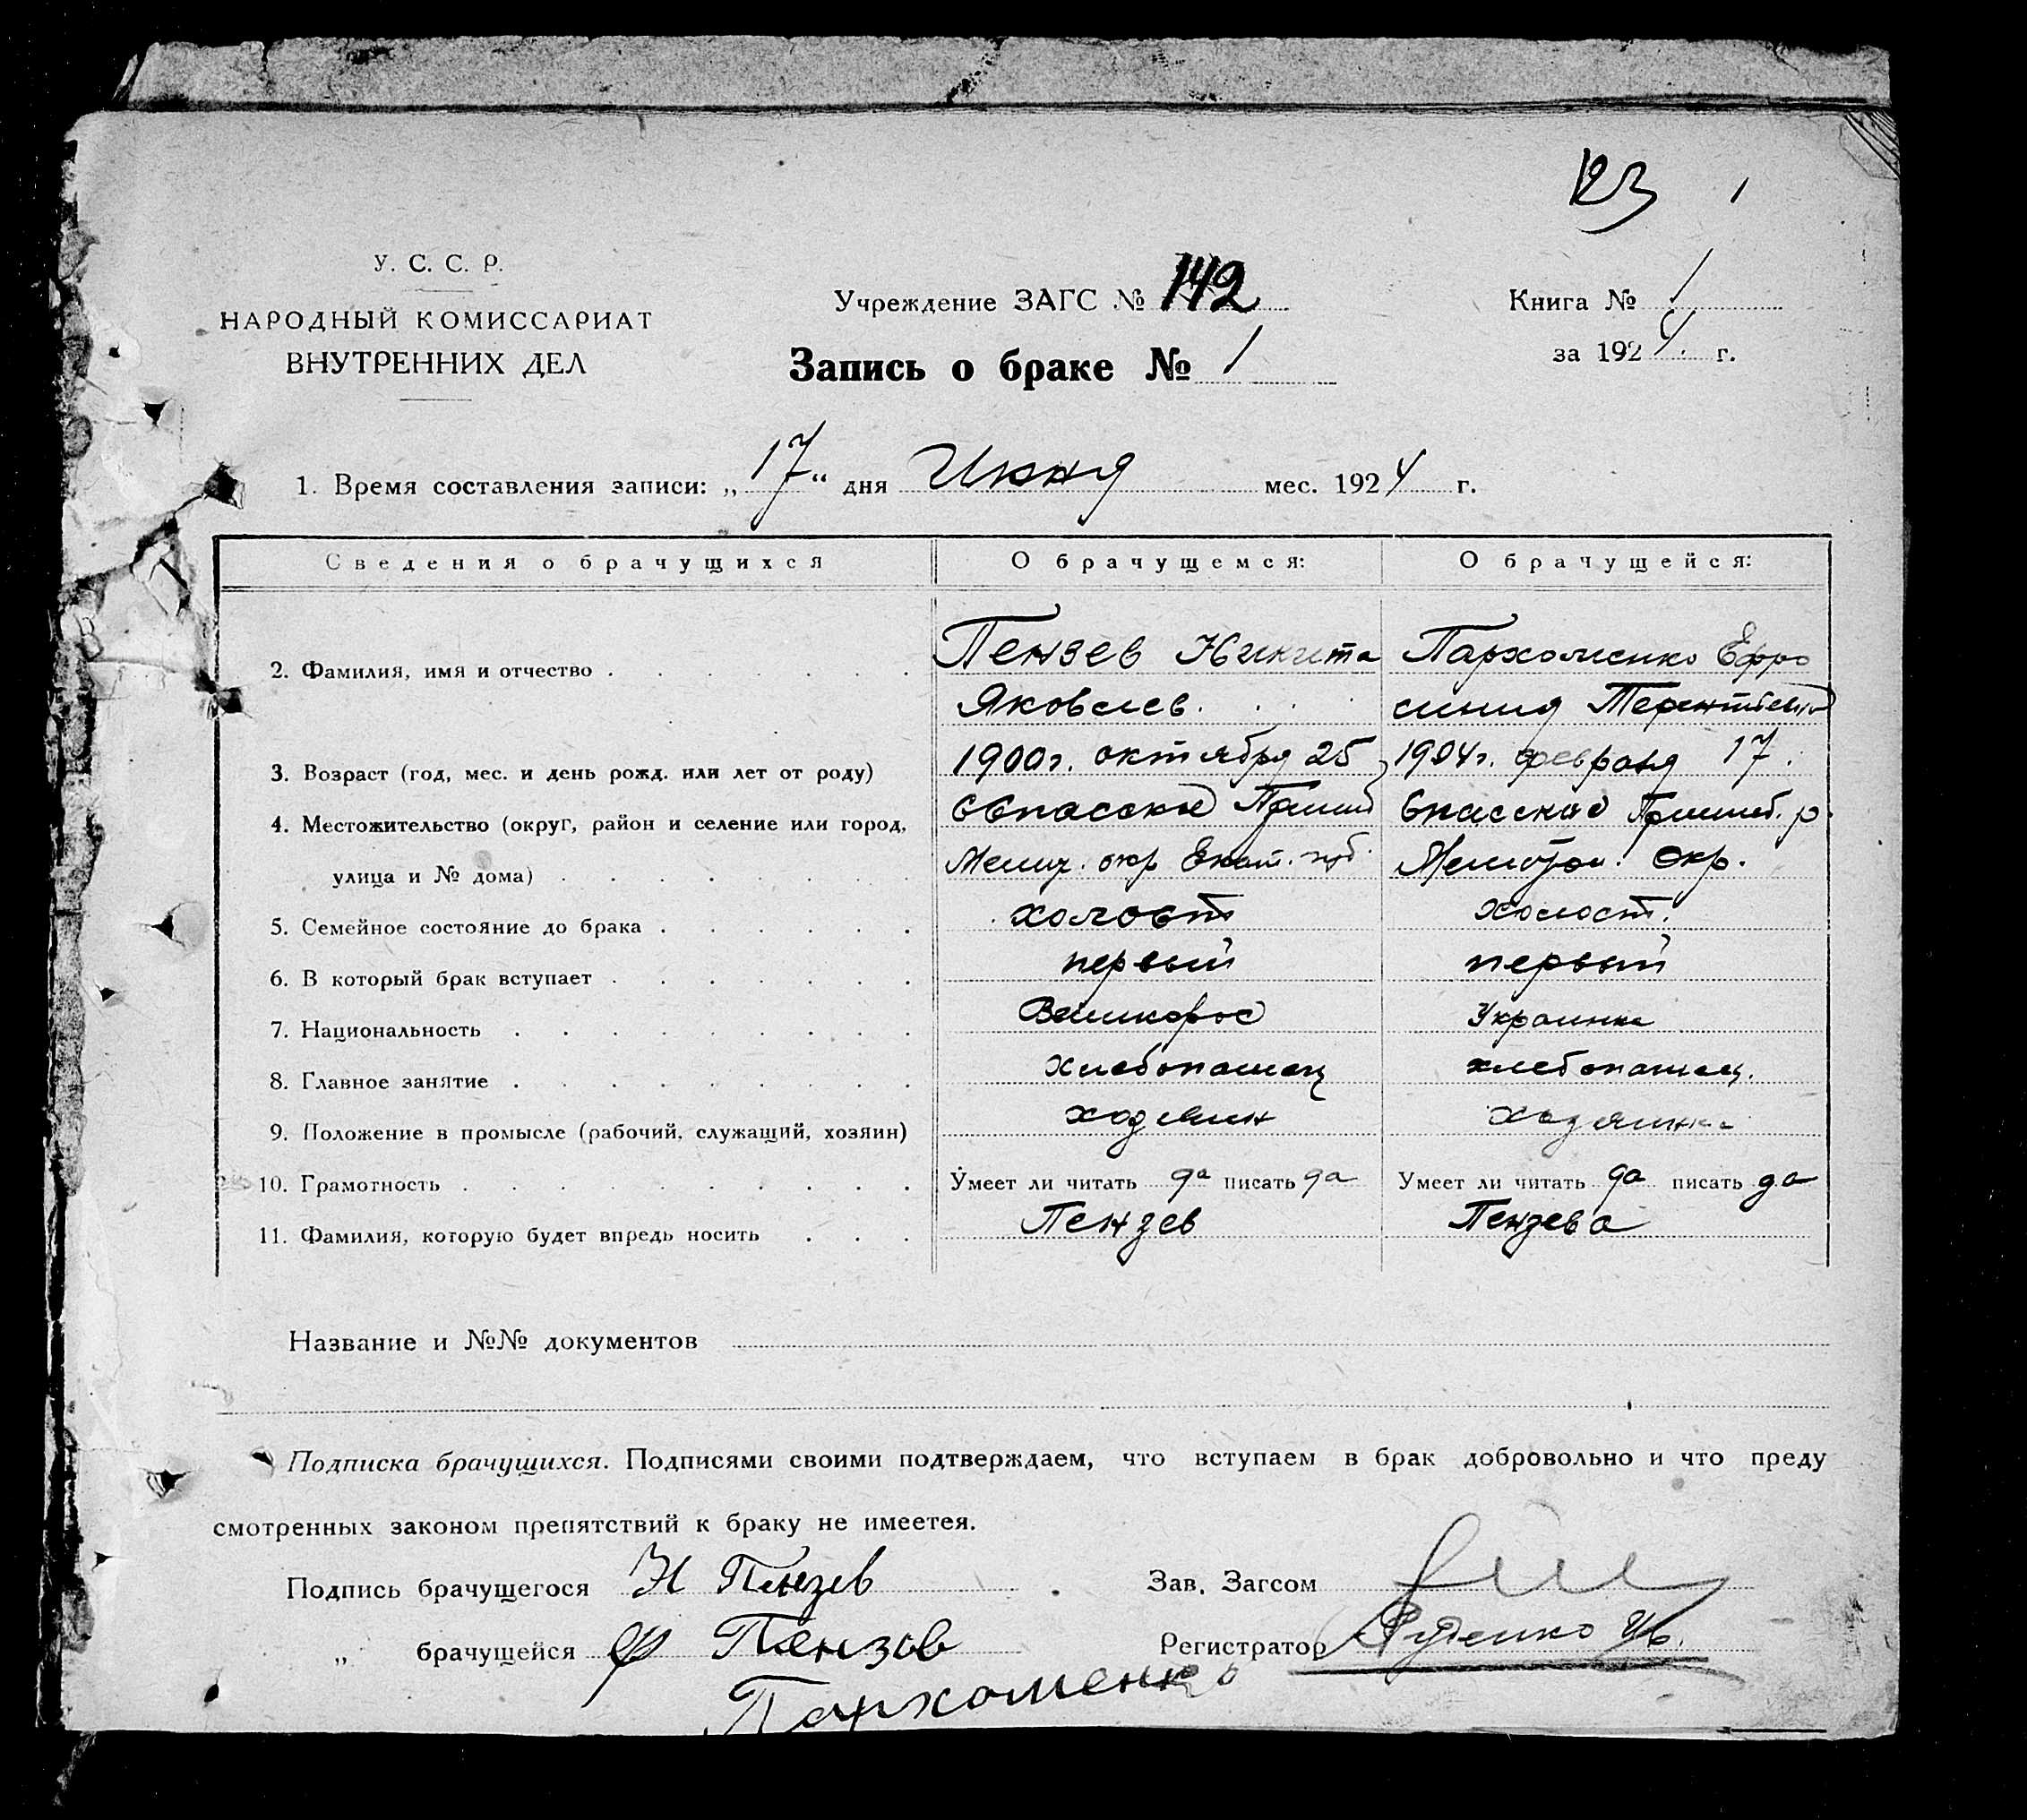 123 1
У. С. С. Р.
НАРОДНЫЙ КОМИССАРИАТ
ВНУТРЕННИХ ДЕЛ
Учреждение ЗАГС № 142
Книга № 1
за 1924 г.
Запись о браке № 1
1. Время составления записи: „17“ дня Июня мес. 1924 г.
Сведения о брачущихся О брачущемся: О брачущейся:
2. Фамилия, имя и отчество Пензев Никита Пархоменко Ефро
Яковлев. синия Терентьевна
3. Возраст (год, мес. и день рожд. или лет от роду) 1900г. октября 25 1904г. февраля 17.
4. Местожительство (округ, район и селение или город, Спасское Пришиб. р.
улица и № дома) окр Екат. губ. Мелитоп. Окр.
5. Семейное состояние до брака холост холост.
6. В который брак вступает первый первый
7. Национальность Великорос Украинка
8. Главное занятие хлебопашец хлебопашец.
9. Положение в промысле (рабочий, служащий, хозяин) хозяин хозяинка
10. Грамотность Умеет ли читать да писать да Умеет ли читать да писать да
11. Фамилия, которую будет впредь носить Пензев Пензева
Название и №№ документов
Подписка брачущихся. Подписями своими подтверждаем, что вступаем в брак добровольно и что преду
смотренных законом препятствий к браку не имеетея.
Подпись брачущегося Н Пензев Зав. Загсом
„ брачущейся Ф Пензов Регистратор Руденко
Пархоменко